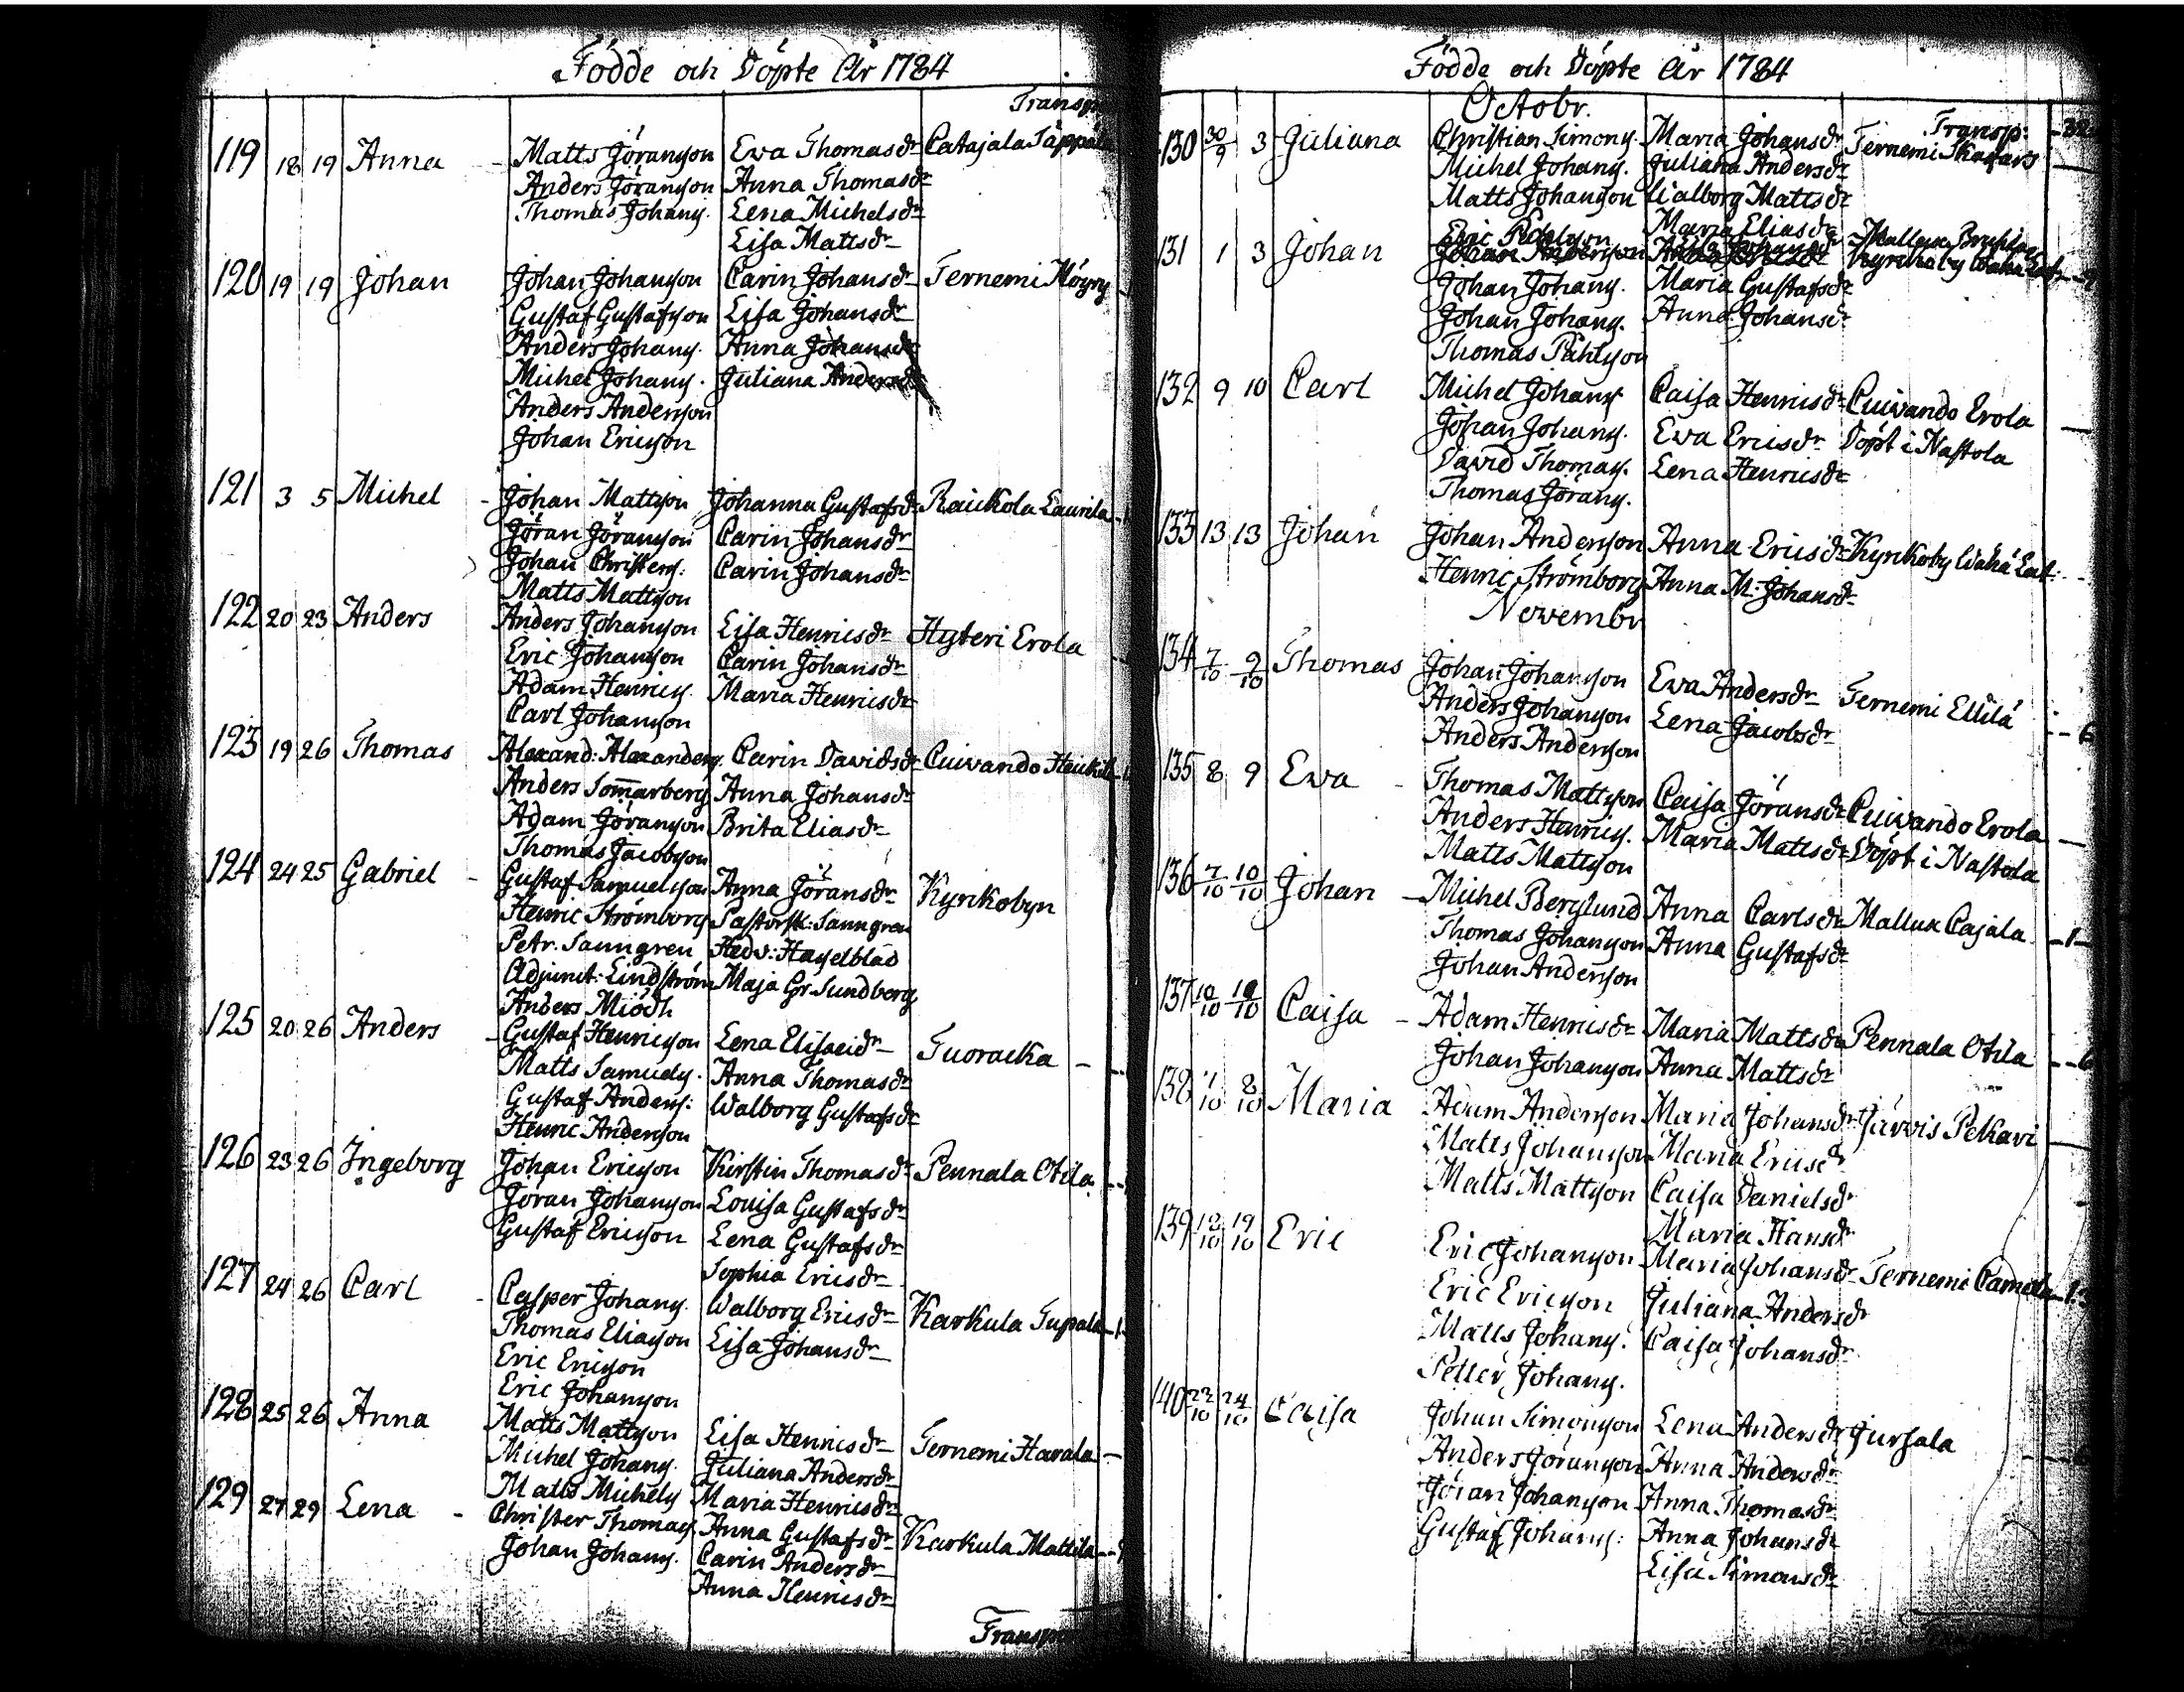 Födde och Döpte År 1784
Transp
119 18 19 Anna - Matts Göranson Eva Thomasdr Catajala Täppälä
Anders Göranson Anna Thomasdr
Thomas Johans. Lena Michelsdr
Lisa Mattsdr
120 19 19 Johan Johan Johanson Carin Johansdr Ternemi Höyry
Gustaf Gustafson Lisa Johansdr
Anders Johans. Anna Johansdr
Michel Johans. Juliana Andersdr
Anders Anderson
Johan Ericson
121 3 5 Michel - Johan Mattson Johanna Gustafsdr Raickola Laurila
Göran Göranson Carin Johansdr
Johan Christers: Carin Johansdr
Matts Mattson
122 20 23 Anders Anders Johanson Lisa Henricsdr Hyteri Erola
Eric Johanson Carin Johansdr
Adam Henrics. Maria Henricsdr
Carl Johanson
123 19 26 Thomas Alexand: Alexanders. Carin Davidsdr Cuivando Heickil
Anders Som̅arberg Anna Johansdr
Adam Göranson Brita Eliasdr
Thomas Jacobson
124 24 25 Gabriel - Gustaf Samuelson Anna Göransdr Kyrkobyn
Henric Strömborg Pastorsk: Sanngren
Petr. Sanngren Hedv: Hasselblad
Adjunct: Lindström Maja Gr Sundberg
Anders Miödh
125 20 26 Anders - Gustaf Henricson Lena Elisaeidr Tuoracka -
Matts Samuels. Anna Thomasdr
Gustaf Anders: Walborg Gustafsdr
Henric Anderson
126 23 26 Ingeborg Johan Ericson Kirstin Thomasdr Pennala Otila
Göran Johanson Lovisa Gustafsdr
Gustaf Ericson Lena Gustafsdr
Sophia Ericsdr
127 24 26 Carl - Casper Johans. Walborg Ericsdr Karkula Tupala -1-
Thomas Eliason Lisa Johansdr
Eric Ericson
Eric Johanson
128 25 26 Anna Matts Mattson Lisa Henricsdr Ternemi Havala -
Michel Johans. Juliana Andersdr
Matts Michels Maria Henricsdr
129 27 29 Lena - Christer Thomas. Anna Gustafsdr Karkula Mattila
Johan Johans. Carin Andersdr
Anna Henricsdr
Transp
Födde och Döpte År 1784
Octobr.
Transp:
130 30/9 3 Juliana Christian Simons. Maria Johansdr Ternemi Skaffars
Michel Johans. Juliana Andersdr
Matts Johanson Walborg Mattsdr
Maria Eliasdr
131 1 3 Johan
Johan Johans. Maria Gustafsdr
Johan Johans. Anna Johansdr
Thomas Påhlson
132 9 10 Carl Michel Johans. Caisa Henricsdr Cuivando Erola
Johan Johans. Eva Ericsdr Döpt i Nastola
David Thomas. Lena Henricsdr
Thomas Görans.
133 13 13 Johan Johan Anderson Anna Ericsdr Kyrkoby Wähä Eert:
Henric Strömborg Anna M. Johansdr
Novembr
134 7/10 9/10 Thomas Johan Johanson Eva Andersdr Ternemi Ellilä
Anders Johanson Lena Jacobsdr - 6
Anders Anderson
135 8 9 Eva - Thomas Mattson Caisa Göransdr Cuivando Erola
Anders Henrics. Maria Mattsdr Döpt i Nastola
Matts Mattson
136 7/10 10/10 Johan - Michel Berglund Anna Carlsdr Mallux Cajala -1-
Thomas Johanson Anna Gustafsdr
Johan Anderson
137 10/10 10/10 Caisa - Adam Henricsdr Maria Mattsdr Pennala Otila
Johan Johanson Anna Mattsdr
138 7/10 8/10 Maria Adam Anderson Maria Johansdr Järvis Pekari
Matts Johanson Maria Ericsdr
Matts Mattson Caisa Danielsdr
Maria Hansdr
139 18/10 19/10 Eric Eric Johanson Maria Johansdr Ternemi Camola
Eric Ericson Juliana Andersdr
Matts Johans. Caisa Johansdr
Petter Johans.
140 22/10 24/10 Caisa Johan Simonson Lena Andersdr Jursala
Anders Göranson Anna Andersdr
Göran Johanson Anna Thomasdr
Gustaf Johans: Anna Johansdr
Lisa Simonsdr